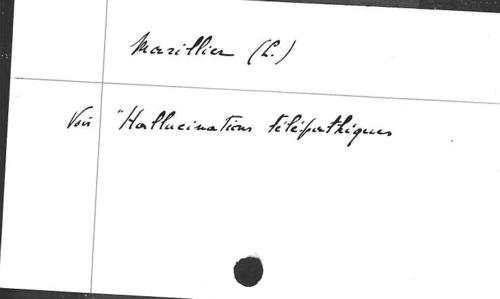 Marillier (L.)
Voir "Hallucinations télépathiques